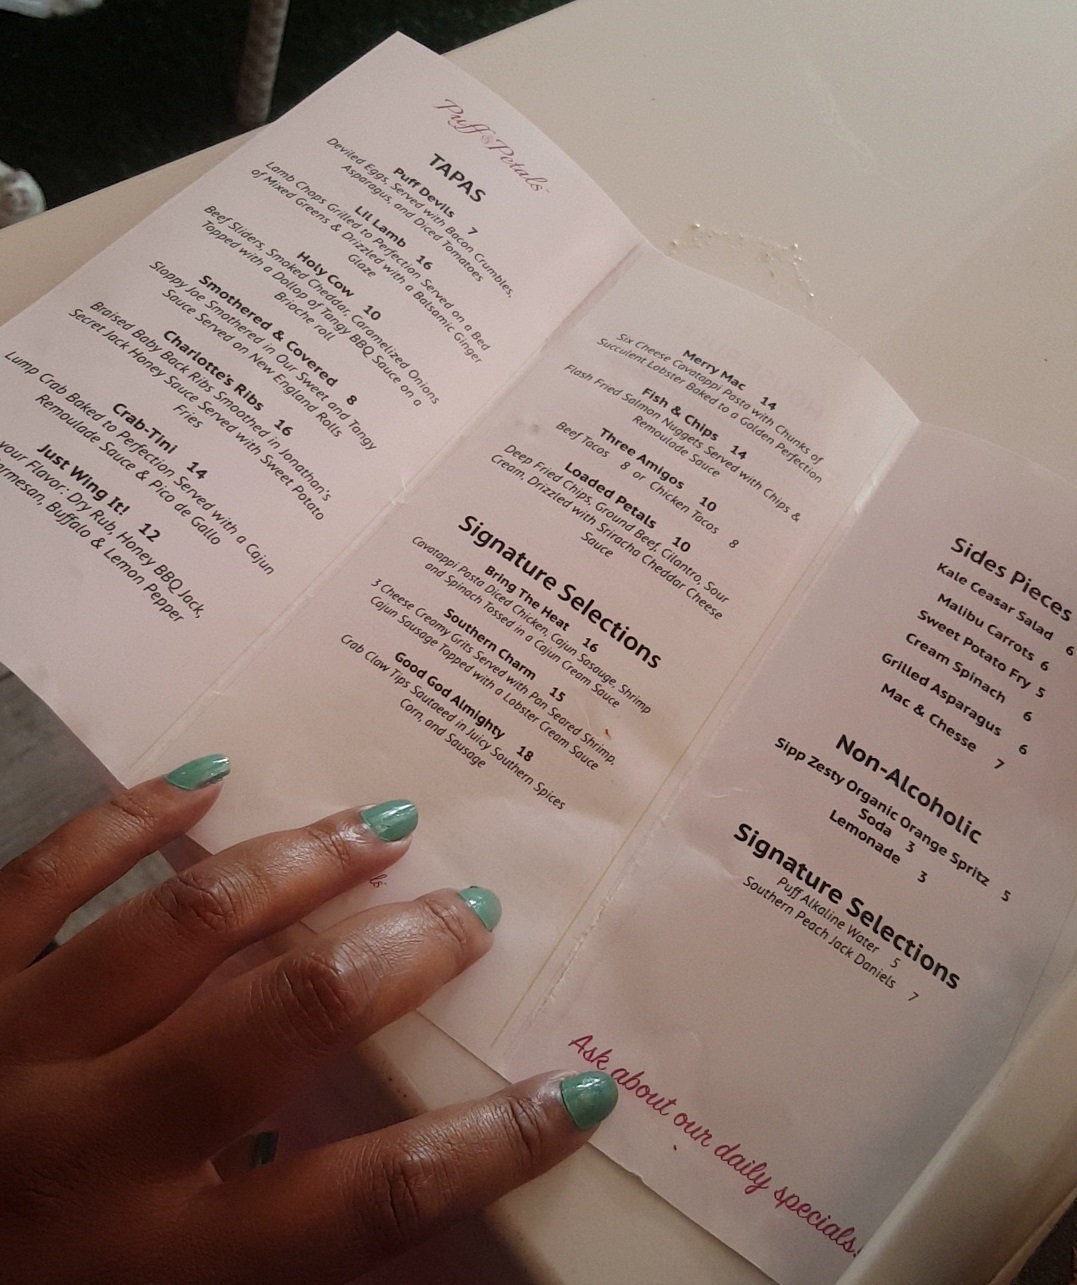 Puff & Petals
TAPAS
Puff Devils 7
Deviled Eggs. Served with Bacon Crumbles,
Asparagus, and Diced Tomatoes
Lil Lamb 16
Lamb Chops Grilled to Perfection Served on a Bed
of Mixed Greens & Drizzled with a Balsamic Ginger
Glaze
Holy Cow 10
Beef Sliders, Smoked Cheddar, Caramelized Onions
Topped with a Dollop of Tangy BBQ Sauce on a
Brioche roll
Smothered & Covered 8
Sloppy Joe Smothered in Our Sweet and Tangy
Sauce Served on New England Rolls
Charlotte's Ribs 16
Braised Baby Back Ribs Smoothed in Jonathan's
Secret Jack Honey Sauce Served with Sweet Potato
Fries
Crab-Tini 14
Lump Crab Baked to Perfection Served with a Cajun
Remoulade Sauce & Pico de Gallo
Just Wing It! 12
your Flavor: Dry Rub, Honey BBQ Jack,
Parmesan, Buffalo & Lemon Pepper
Merry Mac 14
Six Cheese Cavatappi Pasta with Chunks of
Succulent Lobster Baked to a Golden Perfection
Fish & Chips 14
Flash Fried Salmon Nuggets Served with Chips &
Remoulade Sauce
Three Amigos 10
Beef Tacos 8 or Chicken Tacos 8
Loaded Petals 10
Deep Fried Chips, Ground Beef, Cilantro, Sour
Cream, Drizzled with Sriracha Cheddar Cheese
Sauce
Signature Selections
Bring The Heat 16
Cavatappi Pasta Diced Chicken, Cajun Sasauge, Shrimp
and Spinach Tossed in a Cajun Cream Sauce
Southern Charm 15
3 Cheese Creamy Grits Served with Pan Seared Shrimp,
Cajun Sausage Topped with a Lobster Cream Sauce
Good God Almighty 18
Crab Claw Tips Sautaeed in Juicy Southern Spices
Corn, and Sausage
Sides Pieces
Kale Ceasar Salad 6
Malibu Carrots 6
Sweet Potato Fry 5
Cream Spinach 6
Grilled Asparagus 6
Mac & Chesse 7
Non-Alcoholic
Sipp Zesty Organic Orange Spritz 5
Soda 3
Lemonade 3
Signature Selections
Puff Alkaline Water 5
Southern Peach Jack Daniels 7
Ask about our daily specials!